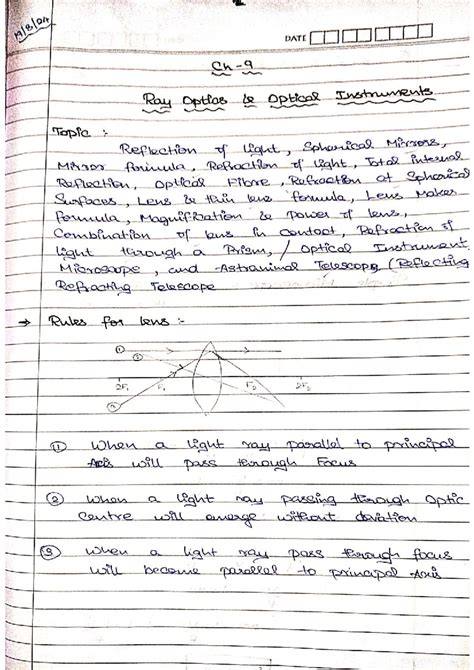 19/8/24
DATE
Ch-9
Ray Optics & Optical Instruments
Topic :
Reflection of light, Spherical Mirrors,
Mirror formula, Refraction of light, Total internal
Reflection, Optical Fibre, Refraction at Spherical
Surfaces, Lens & thin lens formula, Lens Maker
formula, Magnification & Power of lens,
Combination of lens in contact, Refraction of
light through a Prism, / Optical Instrument
Microscope, and Astranimal Telescope (Reflecting
Refracting Telescope
→ Rules for lens :-
① ② ③
2F₁ F₁ F₂ 2F₂
① When a light ray parallel to principal
Axis will pass through Focus
② When a light ray passing through Optic
Centre will emerge without deviation
③ When a light ray pass through focus
will become parallel to principal Axis